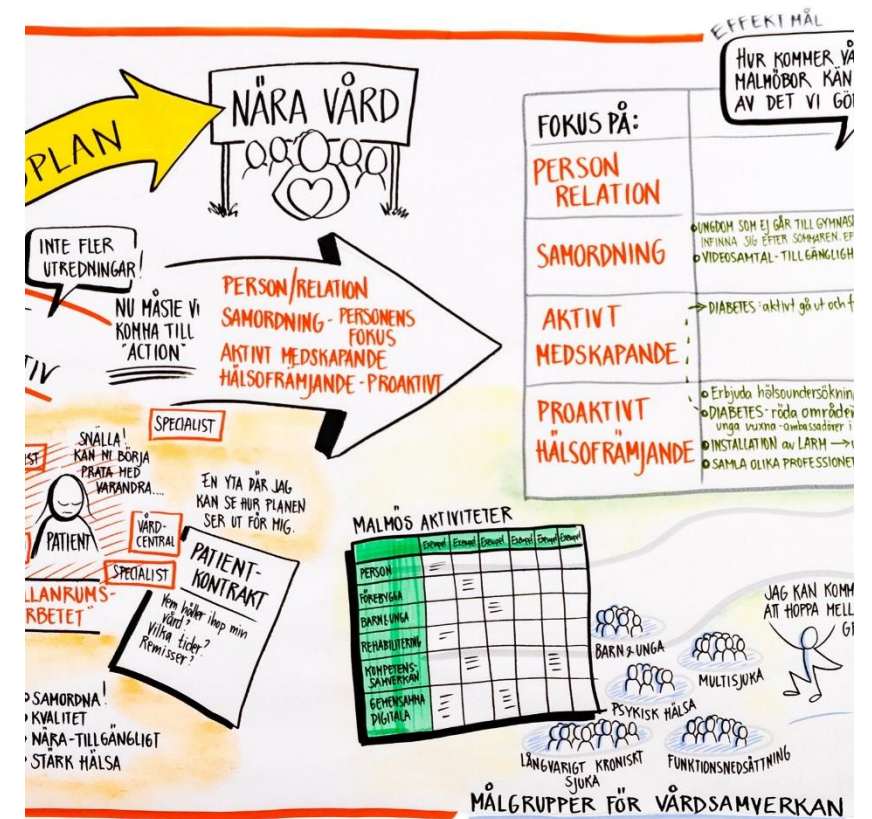 EFFEKTMÅL
HUR KOMMER VÅ
MALMÖBOR KÄN
AV DET VI GÖ
PLAN
NÄRA VÅRD
INTE FLER
UTREDNINGAR!
NU MÅSTE VI
KOMMA TILL
"ACTION"
TIV
PERSON/RELATION
SAMORDNING - PERSONENS
FOKUS
AKTIVT MEDSKAPANDE
HÄLSOFRÄMJANDE - PROAKTIVT
FOKUS PÅ:
PERSON
RELATION
SAMORDNING
UNGDOM SOM EJ GÅR TILL GYMNAS
INFINNA SIG EFTER SOMMAREN. EF
VIDEOSAMTAL - TILLGÄNGLIGH
AKTIVT
MEDSKAPANDE
→ DIABETES: aktivt gå ut och f
PROAKTIVT
HÄLSOFRÄMJANDE
Erbjuda hälsoundersöknin
DIABETES - röda områden
unga vuxna - ambassadörer i
INSTALLATION av LARM →
SAMLA OLIKA PROFESSIONE
SPECIALIST
SNÄLLA!
KAN NI BÖRJA
PRATA MED
VARANDRA....
IST
PATIENT
VÅRD-
CENTRAL
SPECIALIST
LLANRUMS-
RBETET"
EN YTA DÄR JAG
KAN SE HUR PLANEN
SER UT FÖR MIG.
PATIENT-
KONTRAKT
Vem håller ihop min
vård?
Vilka tider?
Remisser?
SAMORDNA!
KVALITET
NÄRA-TILLGÄNGLIGT
STÄRK HÄLSA
MALMÖS AKTIVITETER
Exempel Exempel Exempel Exempel Exempel
PERSON
FÖREBYGGA
BARN & UNGA
REHABILITERING
KOMPETENS-
SAMVERKAN
GEMENSAMMA
DIGITALA
JAG KAN KOMM
ATT HOPPA MELL
G
BARN & UNGA
MULTISJUKA
PSYKISK HÄLSA
LÅNGVARIGT KRONISKT
SJUKA
FUNKTIONSNEDSÄTTNING
MÅLGRUPPER FÖR VÅRDSAMVERKAN